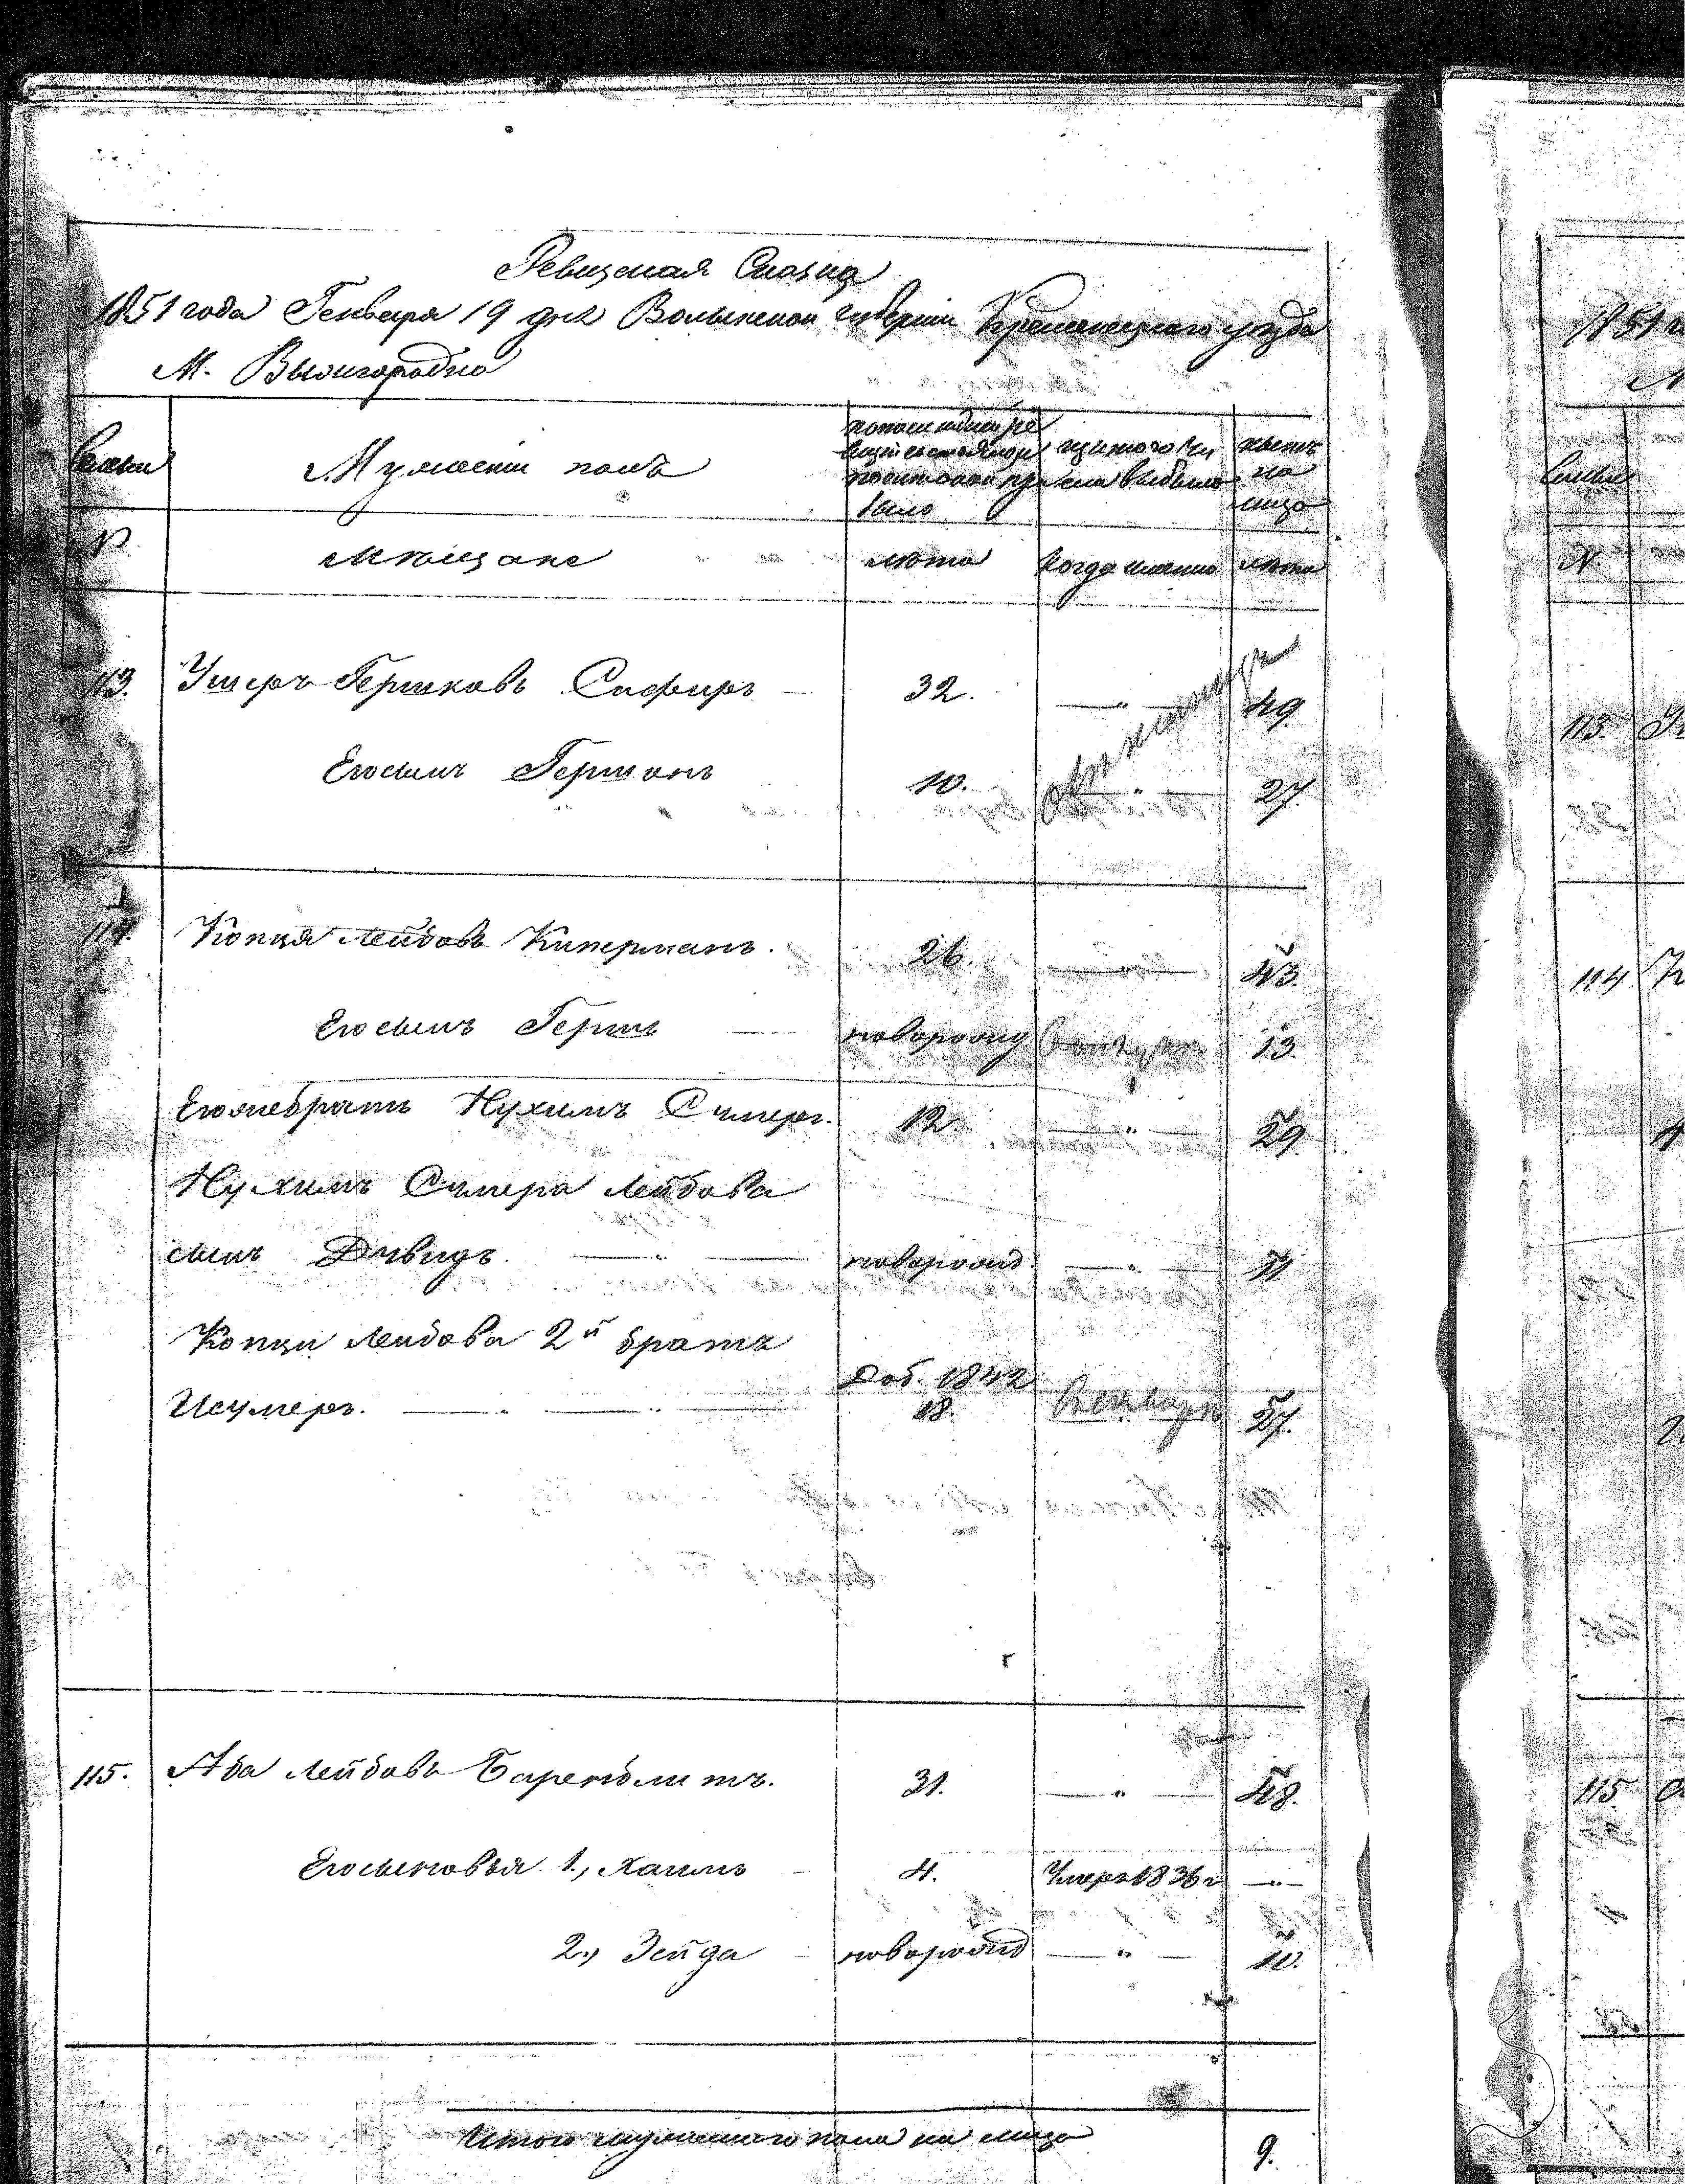 Ревизская Сказка
1851 года Генваря 19 дня Волынской губернии Кременецкаго уезда
М. Вышгородка
Семьи
Мужескій полъ
По последней ре
визіи состояло и
после оной при
было
изъ того чи
сла выбыло
ныне
на
лицо
№
Мѣщане
лѣта
когда именно
лѣта
113. Ушеръ Гершковъ Сафиръ 32. 49
Его сынъ Гершонъ 10. 27.
114. Копця Лейбовъ Киперманъ. 26. 43.
Его сынъ Гершъ новорожд 13.
Егожебратъ Нухимъ Смеръ. 12. 29
Нухимъ Смера Лейбова
сынъ Дувидъ. новорожд 11
Копци Лейбова 2й братъ
Доб. 1842
Исумеръ. 18. 27.
115. Аба Лейбовъ Баренблитъ. 31. 48.
Его сыновья 1., Хаимъ 4. Умеръ 1836 г
2., Зейда новорожд 10.
Итого мужескаго пола на лицо 9.
1851
113.
114
115